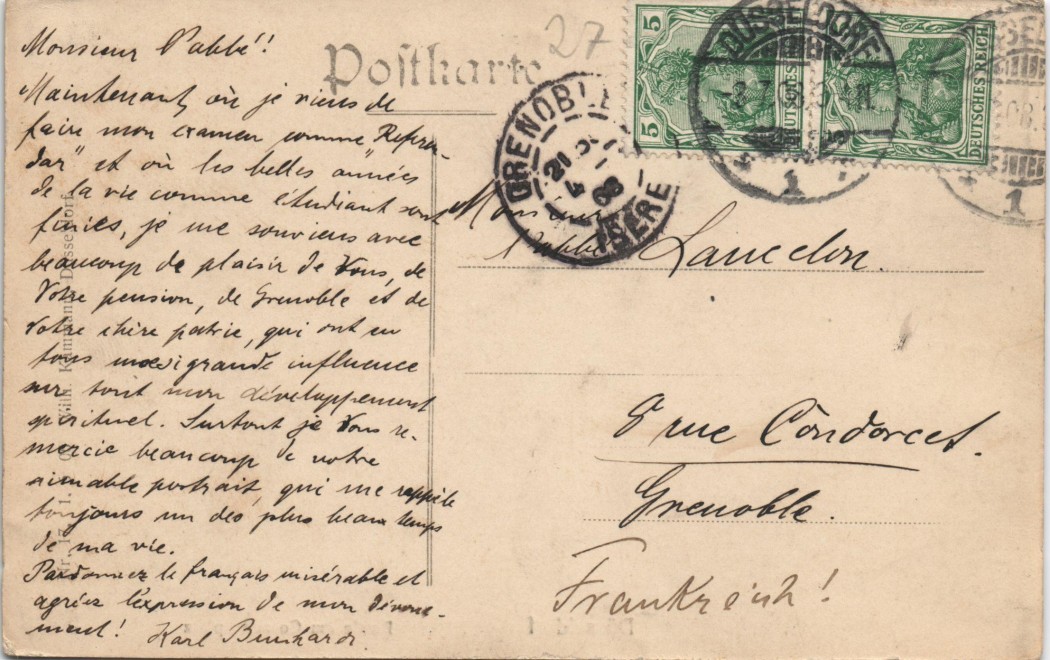 Monsieur l'abbé!!
Maintenant, où je viens de
faire mon examen comme "Referen-
dar" et où les belles années
de la vie comme étudiant sont
finies, je me souviens avec
beaucoup de plaisir de Vous, de
Votre pension, de Grenoble et de
Votre chère patrie, qui ont eu
tous une si grande influence
sur tout mon développement
spirituel. Surtout je Vous re-
mercie beaucoup de votre
aimable portrait, qui me rappèle
toujours un des plus beaux temps
de ma vie.
Pardonnez le français misérable et
agréez l'expression de mon dévoue-
ment! Karl
Postkarte
27
GRENOBLE
ISERE
5
5
DEUTSCHES
DEUTSCHES REICH
DÜSSELDORF
1
1
Monsieur
l'abbé
8 rue Condorcet.
Grenoble.
Frankreich!
Wilh. Düsseldorf